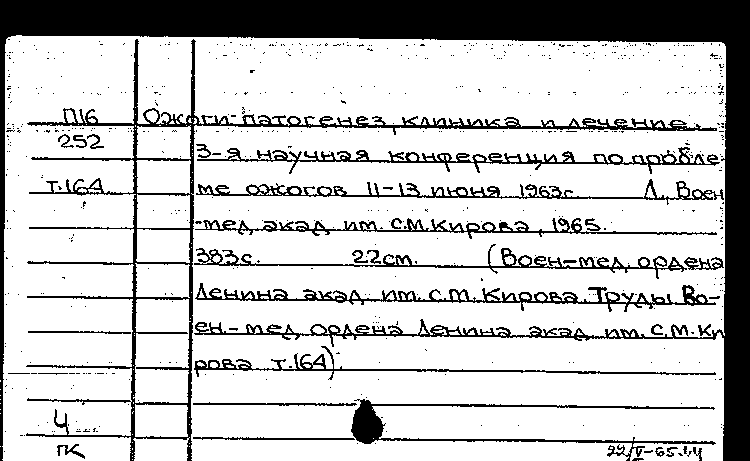 П16 Ожоги-патогенез, клиника и лечение.
252 3-я научная конференция по пробле
т.164 ме ожогов 11-13 июня 1963г. Л., Воен
-мед. акад. им. С.М.Кирова, 1965.
383с. 22см. (Воен-мед. ордена
Ленина акад. им. С.М. Кирова. Труды Во-
ен.-мед. ордена Ленина акад. им. С.М.Ки
рова т.164).
Ч
ПК 22/V-65.